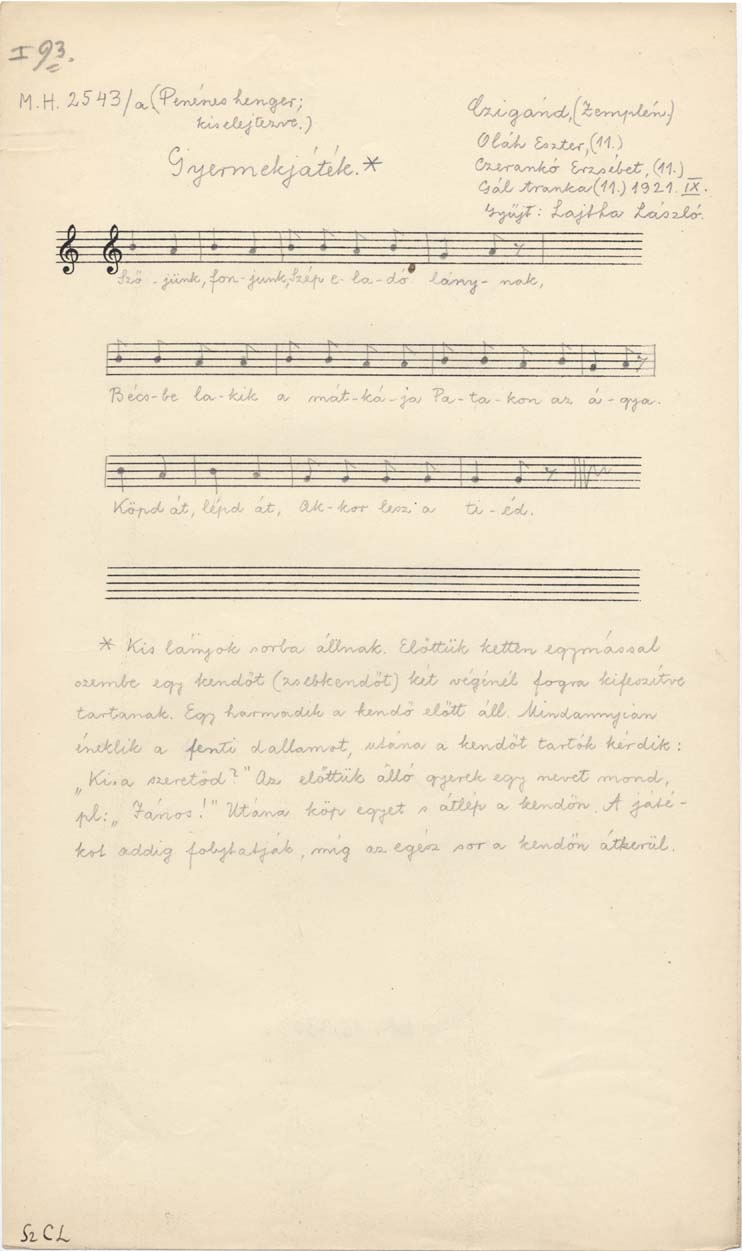 I 93.
M.H. 2543/a (Penénes henger;
kiselejtezve.)
Czigánd, (Zemplén.)
Oláh Eszter, (11.)
Czerankó Erzsébet, (11.)
Gál Aranka (11.) 1921. IX.
Gyűjt: Lajtha László.
Gyermekjáték.*
Sző-jünk, fon-junk, Szép e-la-dó lány-nak,
Bécs-be la-kik a mát-ká-ja Pa-ta-kon az á-gya.
Köpd át, lépd át, Ak-kor lesz a ti-éd.
* Kis lányok sorba állnak. Előttük ketten egymással
szembe egy kendőt (zsebkendőt) két végénél fogva kifeszítve
tartanak. Egy harmadik a kendő előtt áll. Mindannyian
éneklik a fenti dallamot, utána a kendőt tartók kérdik:
„Ki a szeretőd?" Az előttük álló gyerek egy nevet mond,
pl: „János!" Utána köp egyet s átlép a kendőn. A játé-
kot addig folytatják, míg az egész sor a kendőn átkerül.
Sz C L